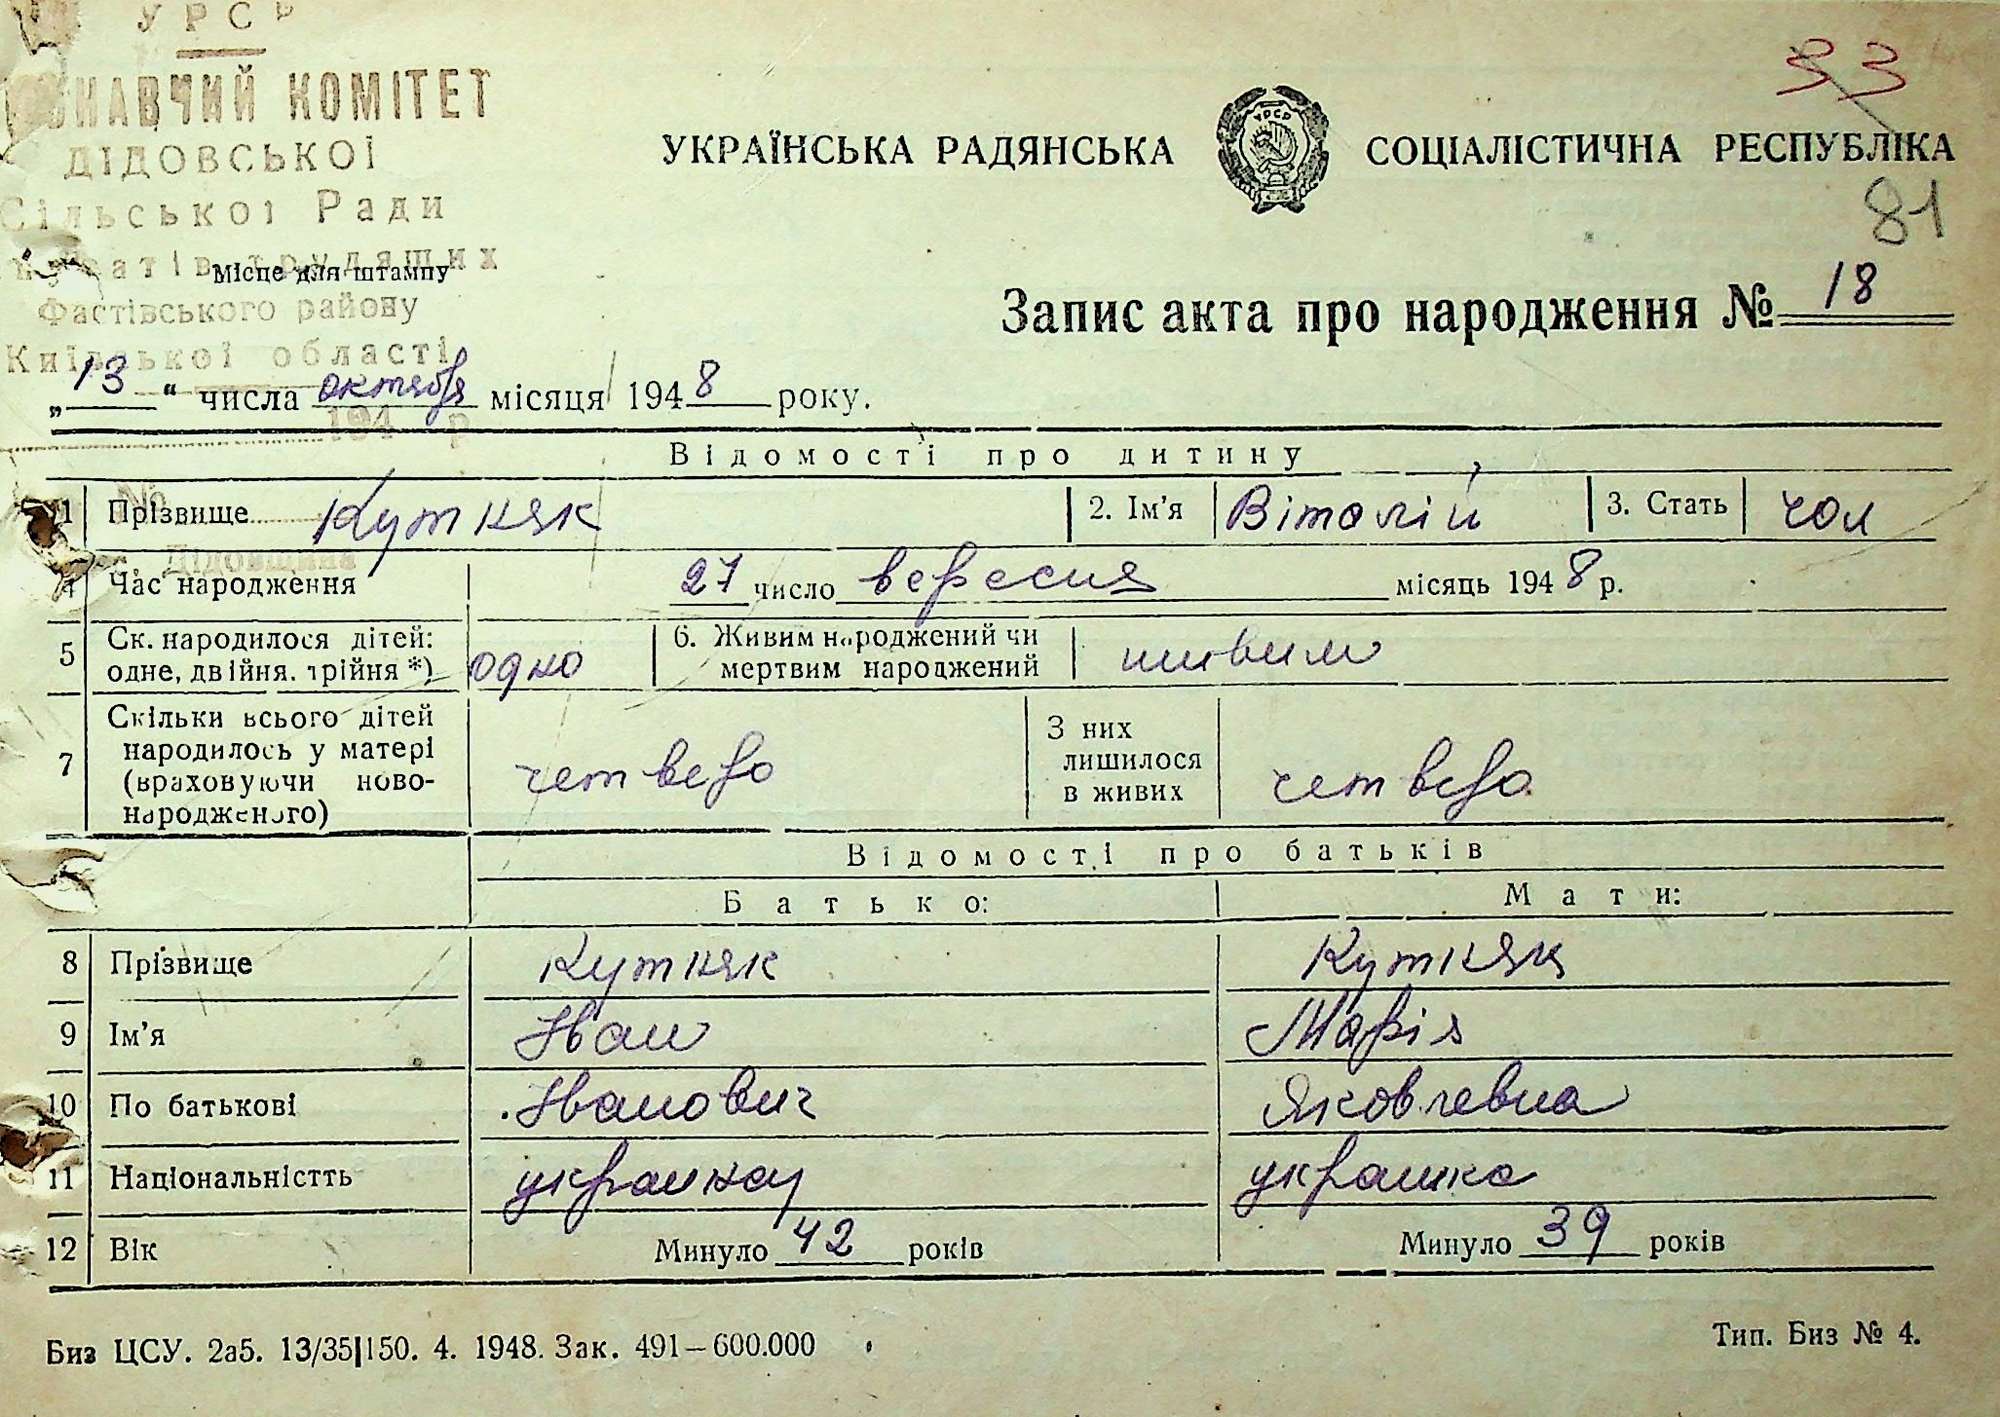 УРСР
КОМІТЕТ
ДІДОВСЬКОЇ
Сільської Ради
трудящих
Фастівського району
Київської області
194 р
№
Дідовщина
33
УКРАЇНСЬКА РАДЯНСЬКА СОЦІАЛІСТИЧНА РЕСПУБЛІКА
УРСР
81
Місце для штампу
Запис акта про народження № 18
„13“ числа октября місяця 1948 року.
Відомості про дитину
1 Прізвище Кутняк 2. Ім'я Віталій 3. Стать чол
4 Час народження 27 число вересня місяць 1948 р.
5 Ск. народилося дітей: одно 6. Живим народжений чи живим
одне, двійня, трійня *) мертвим народжений
7 Скільки всього дітей четверо З них четверо
народилось у матері лишилося
(враховуючи ново- в живих
народженого)
Відомості про батьків
Батько: Мати:
8 Прізвище Кутняк Кутняк
9 Ім'я Іван Марія
10 По батькові Іванович Яковлевна
11 Національністть украинец украинка
12 Вік Минуло 42 років Минуло 39 років
Биз ЦСУ. 2а5. 13/35|150. 4. 1948. Зак. 491–600.000 Тип. Биз № 4.